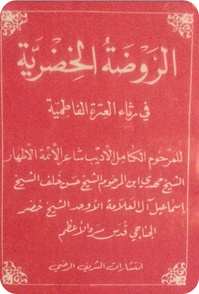 الروضة الخضرية
في رثاء العترة الفاطمية
للمرحوم الكامل الأديب شاعر الأئمة الأطهار
الشيخ محمدي ابن المرحوم الشيخ حسن خلف الشيخ
إسماعيل آل العلامة الأوحد الشيخ خضر
الجناجي قدس سره الأعظم
انتشارات الشريف الرضي